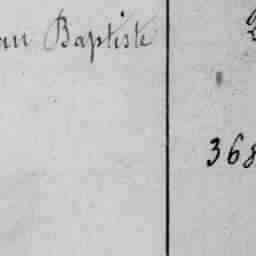 an Baptiste
368